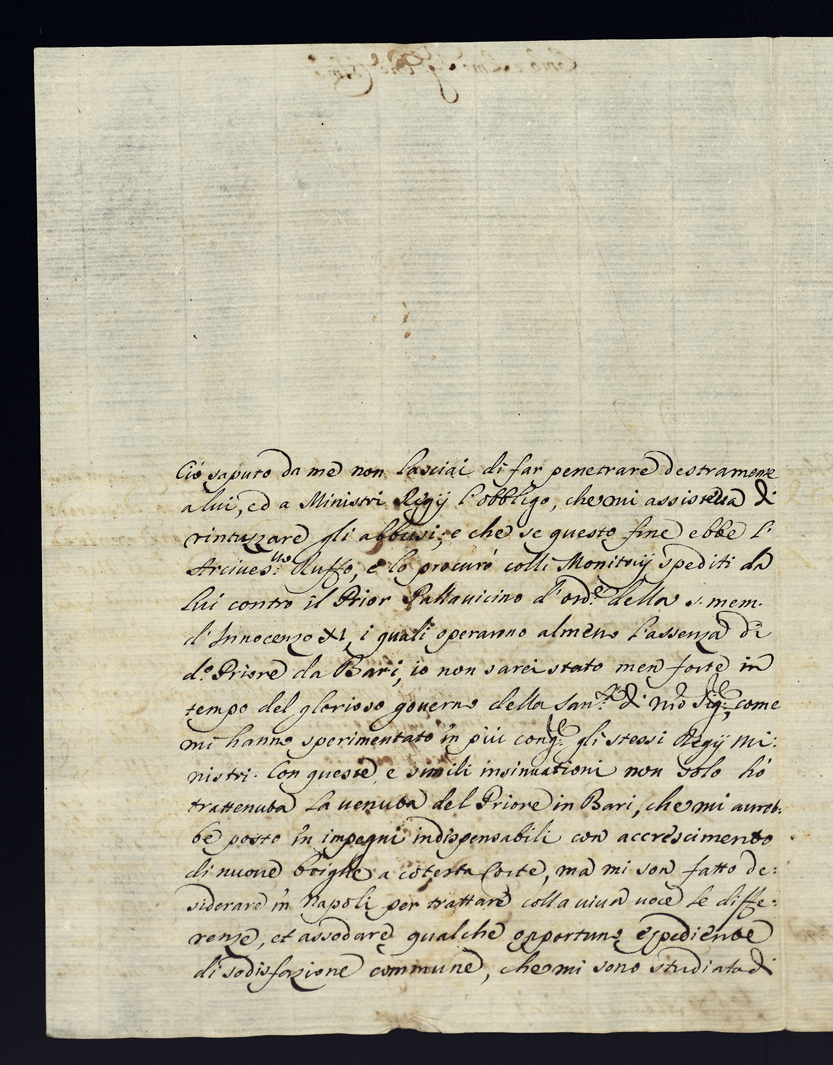 Ciò saputo da me non lasciai di far penetrare destramente
a lui, ed a Ministri Regij l'obbligo, che mi assisteva di
rintuzzare gli abbusi; e che se questo fine ebbe l'
Arcives.vo Ruffo, e lo procurò colli Monitorij spediti da
lui contro il Prior Pallavicino d'ord.e della s. mem.
d'Innocenzo XI, i quali operanno almeno l'assenza di
d.o Priore da Bari, io non sarei stato men forte in
tempo del glorioso governo della San.tà di nrõ Sig.re, come
mi hanno sperimentato in più cong.re gli stessi Regij Mi:
nistri. Con queste, e simili insinuationi non solo hò
trattenuta la venuta del Priore in Bari, che mi avreb:
be posto in impegni indispensabili con accrescimento
di nuove brighe a cotesta Corte, ma mi son fatto de:
siderare in Napoli per trattare colla viva voce le diffe:
renze, et assodare qualche opportuno espediente
di sodisfazione commune, che mi sono studiato di